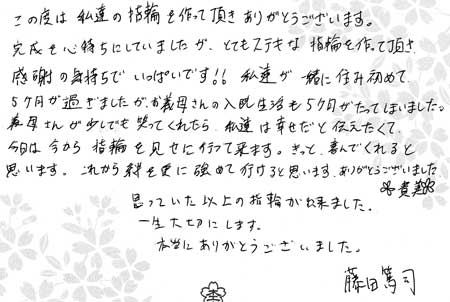 この度は私達の指輪を作って頂きありがとうございます。
完成を心待ちにしていましたが、とてもステキな指輪を作って頂き
感謝の気持ちでいっぱいです!! 私達が一緒に住み初めて
5ケ月が過ぎましたが、お義母さんの入院生活も5ケ月がたってしまいました。
義母さんが少しでも笑ってくれたら、私達は幸せだと伝えたくて
今日は今から指輪を見せに行って来ます。きっと、喜んでくれると
思います。これから絆を更に強めて行けると思います。ありがとうございました
貴美
思っていた以上の指輪が出来ました。
一生大切にします。
本当にありがとうございました。
藤田篤司